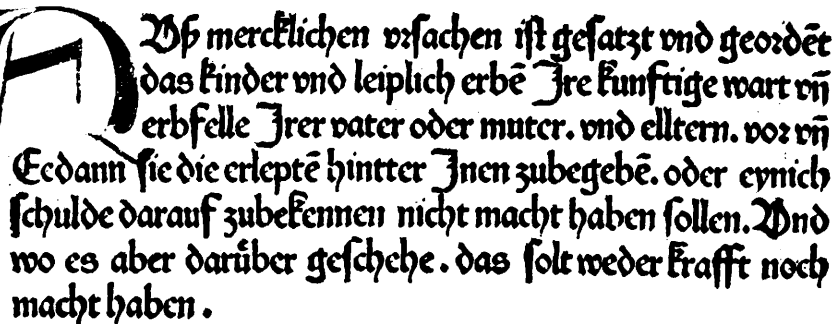 AUß mercklichen vrsachen ist gesatzt vnd geordēt
das kinder vnd leiplich erbē Jre kunftige wart vn̄
erbfelle Jrer vater oder muter. vnd elltern. vor vn̄
Eedann sie die erleptē hintter Jnen zubegebē. oder eynich
schulde darauf zubekennen nicht macht haben sollen. Vnd
wo es aber darüber geschehe. das solt weder krafft noch
macht haben.